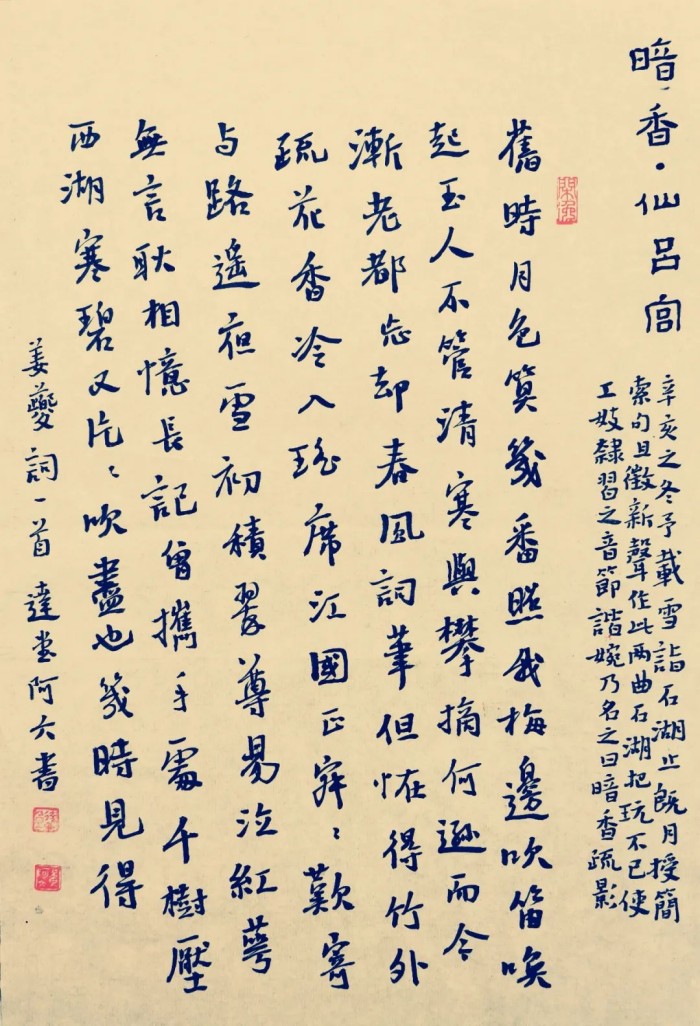 暗·香·仙呂宮
辛亥之冬予載雪詣石湖止既月授簡
索句且徵新聲作此两曲石湖把玩不已使
工妓隸習之音節諧婉乃名之曰暗香疏影
舊時月色算幾番照我梅邊吹笛喚
起玉人不管清寒與攀摘何遜而今
漸老都忘却春風詞筆但怪得竹外
疏花香冷入瑤席江國正寂〻歎寄
与路遥夜雪初積翠尊易泣紅萼
無言耿相憶長記曾攜手處千樹壓
西湖寒碧又片〻吹盡也幾時見得
姜夔詞一首達堂阿六書